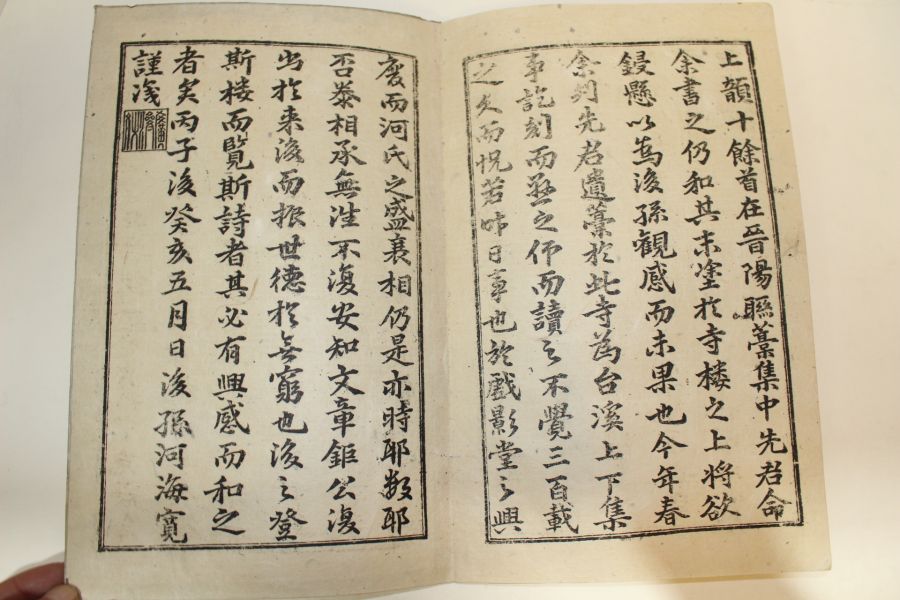 上韻十餘首在晉陽聯藁集中先君命
余書之仍和其末塗於寺樓之上將欲
鋟懸以為後孫觀感而未果也今年春
余刋先君遺藁於此寺為台溪上下集
事訖刻而燕之仰而讀之不覺三百載
之久而怳若昨日事也於戲影堂之興
廢而河氏之盛衰相仍是亦時耶數耶
否泰相承無淮不復安知文章鉅公復
出於来後而振世德於無窮也後之登
斯樓而覽斯詩者其必有興感而和之
者矣丙子後癸亥五月日後孫河海寛
謹淺